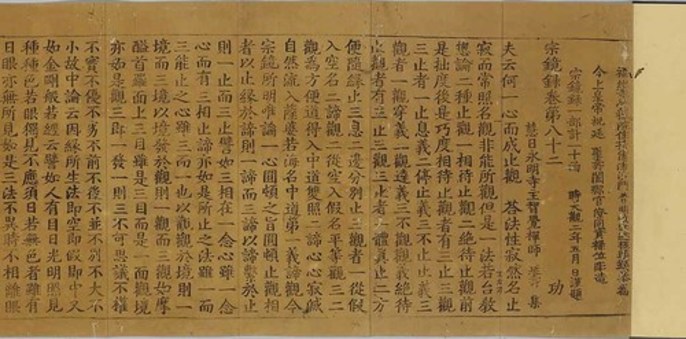 今上皇帝祝延 聖壽闔郡官僚同資祿位雕造
宗鏡錄一部計一十函 時大觀二年五月日謹題
宗鏡錄卷第八十二 功
慧日永明寺主智覺禪師 延壽 集
夫云何一心而成止觀 答法性寂然名止
寂而常照名觀非能所觀但是一法若台教
惣論二種止觀一相待止觀二絕待止觀前
是拙度後是巧度相待止觀者有三止三觀
三止者一止息義二停止義三不止止義三
觀者一觀穿義二觀達義三不觀觀義絕待
止觀者有三止三觀三止者一體真止二方
便隨緣止三息二邊分別止三觀者一從假
入空名二諦觀二從空入假名平等觀三二
觀爲方便道得入中道雙照二諦心心寂滅
自然流入薩婆若海名中道第一義諦觀今
宗鏡所明唯論一心圓頓之旨圓頓止觀相
者以止緣於諦則一諦而三諦以諦繫於止
則一止而三止譬如三相在一念心雖一念
心而有三相止諦亦如是所止之法雖一而
三能止之心雖三而一也以觀觀於境則一
境而三境以境發於觀則一觀而三觀如摩
醯首羅面上三目雖是三目而是一面觀境
亦如是觀三即一發一即三不可思議不權
不實不優不劣不前不後不並不別不大不
小故中論云因緣所生法即空即假即中又
如金剛般若經云譬如人有目日光明照見
種種色若眼獨見不應須日若無色者雖有
日眼亦無所見如是三法不異時不相離眼